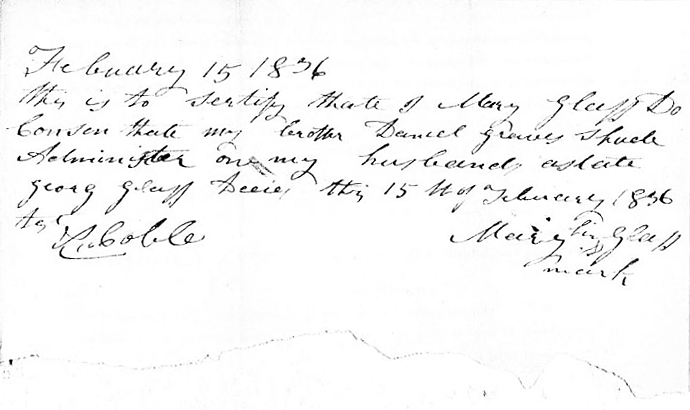 February 15 1836
this is to sertify thate I Mary Glass Do
Consen thate my brother Daniel Graves Shode
Administer one my husbands astate
Georg Glass Deces this 15th of February 1836
Coble Mary Glass
mark